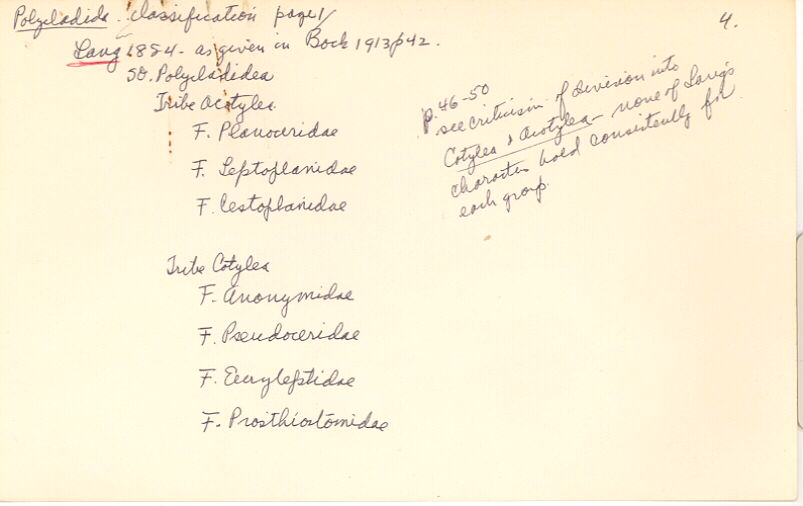 Polycladida classification page 1/
4.
Lang 1884 - as given in Bock 1913 p42.
SO. Polycladidea
Tribe Acotylea
F. Planoceridae
F. Leptoplanidae
F. Cestoplanidae
Tribe Cotylea
F. Anonymidae
F. Pseudoceridae
F. Euryleptidae
F. Prosthiostomidae
p. 46-50
see criticism of division into
Cotylea & Acotylea - none of Lang's
characters hold consistently for
each group.